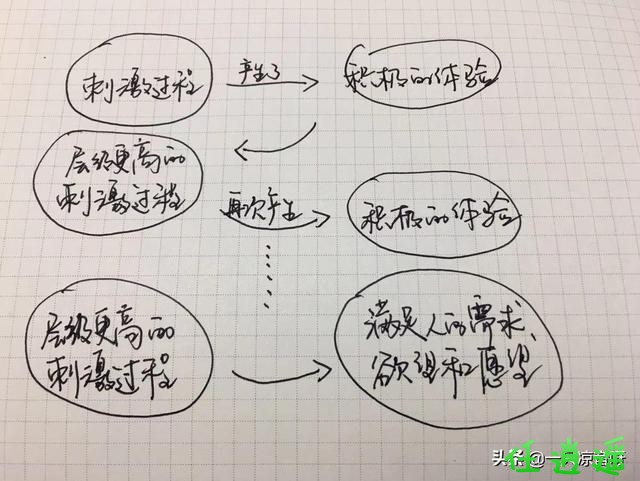 刺激过程
产生了
积极的体验
层级更高的
刺激过程
再次产生
积极的体验
层级更高的
刺激过程
满足人的需求、
欲望和愿望
头条@一
任逍遥